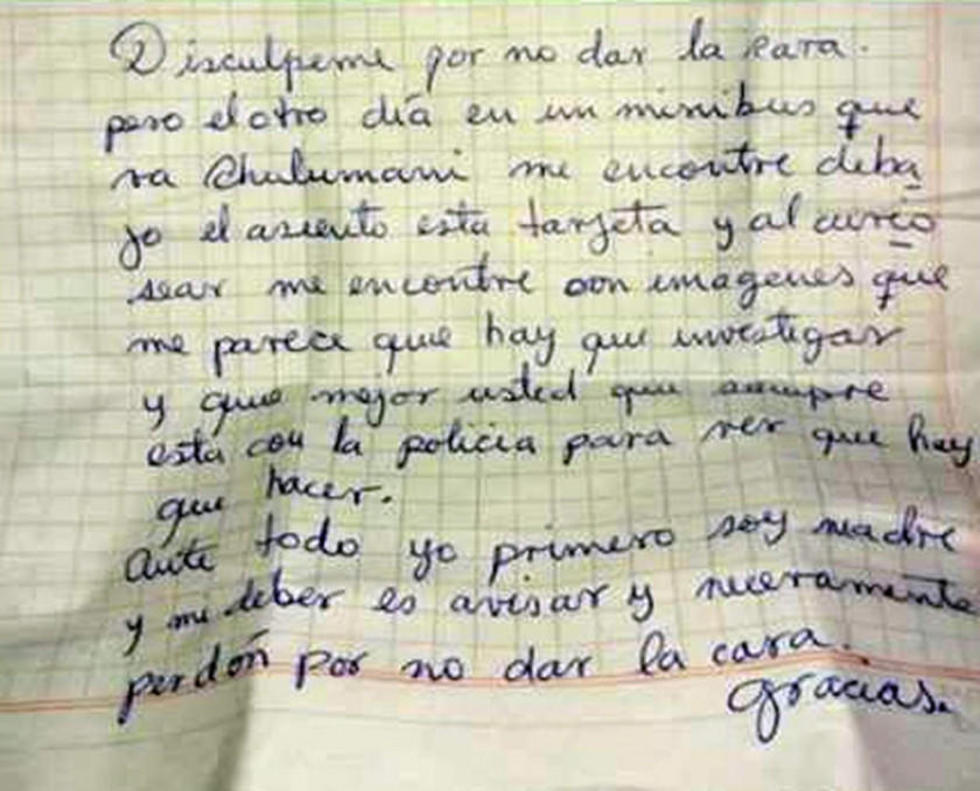 Disculpeme por no dar la cara.
pero el otro día en un minibus que
va Chulumani me encontre deba
jo el asiento esta tarjeta y al curio
sear me encontre con imagenes que
me parece que hay que investigar
y que mejor usted que siempre
esta con la policia para ver que hay
que hacer.
Ante todo yo primero soy madre
y mi deber es avisar y nuevamente
perdón por no dar la cara.
gracias.